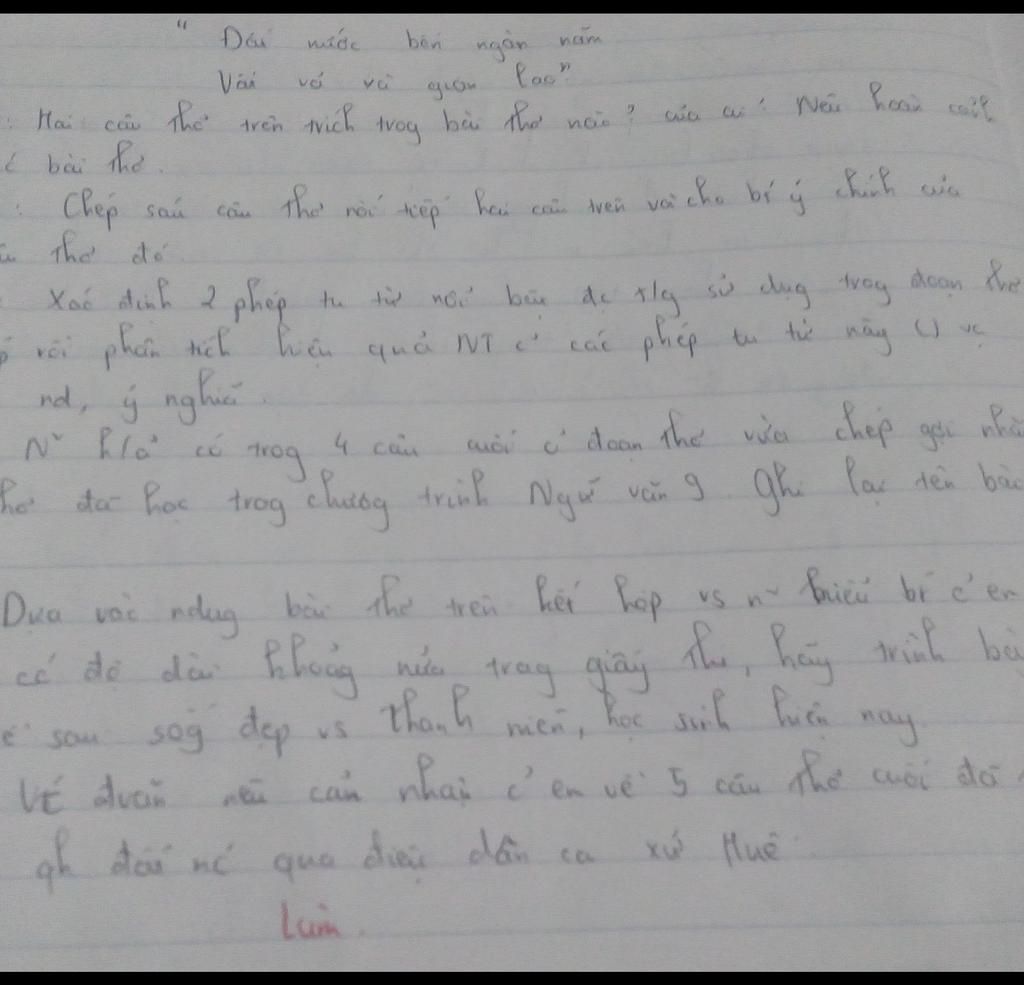 " Đất nước bốn ngàn năm
Vất vả và gian lao"
: Hai câu thơ trên trích trog bài thơ nào? của ai? Nêu hoàn cảnh
bài thơ.
: Chép sáu câu thơ nối tiếp hai câu trên và cho bí ý chính của
thơ đó.
Xác định 2 phép tu từ nổi bật đc t/g sử dụg trog đoạn thơ
rồi phân tích hiệu quả NT c' các phép tu từ này () vc
nd, ý nghĩa.
N~ h/ả có trog 4 câu cuối c' đoạn thơ vừa chép gợi nhớ
đã học trog chươg trình Ngữ văn 9. Ghi lại tên bài
Dựa vào ndug bài thơ trên kết hợp vs n~ hiểu bí c' em
có độ dài khoảg nửa trag giấy thi, hãy trình bày
sao sốg đẹp vs thanh niên, học sinh hiện nay.
Vt đvăn nêu cảm nhận c' em về 5 câu thơ cuối
đất nc qua điệu dân ca xứ Huế.
Lưm.